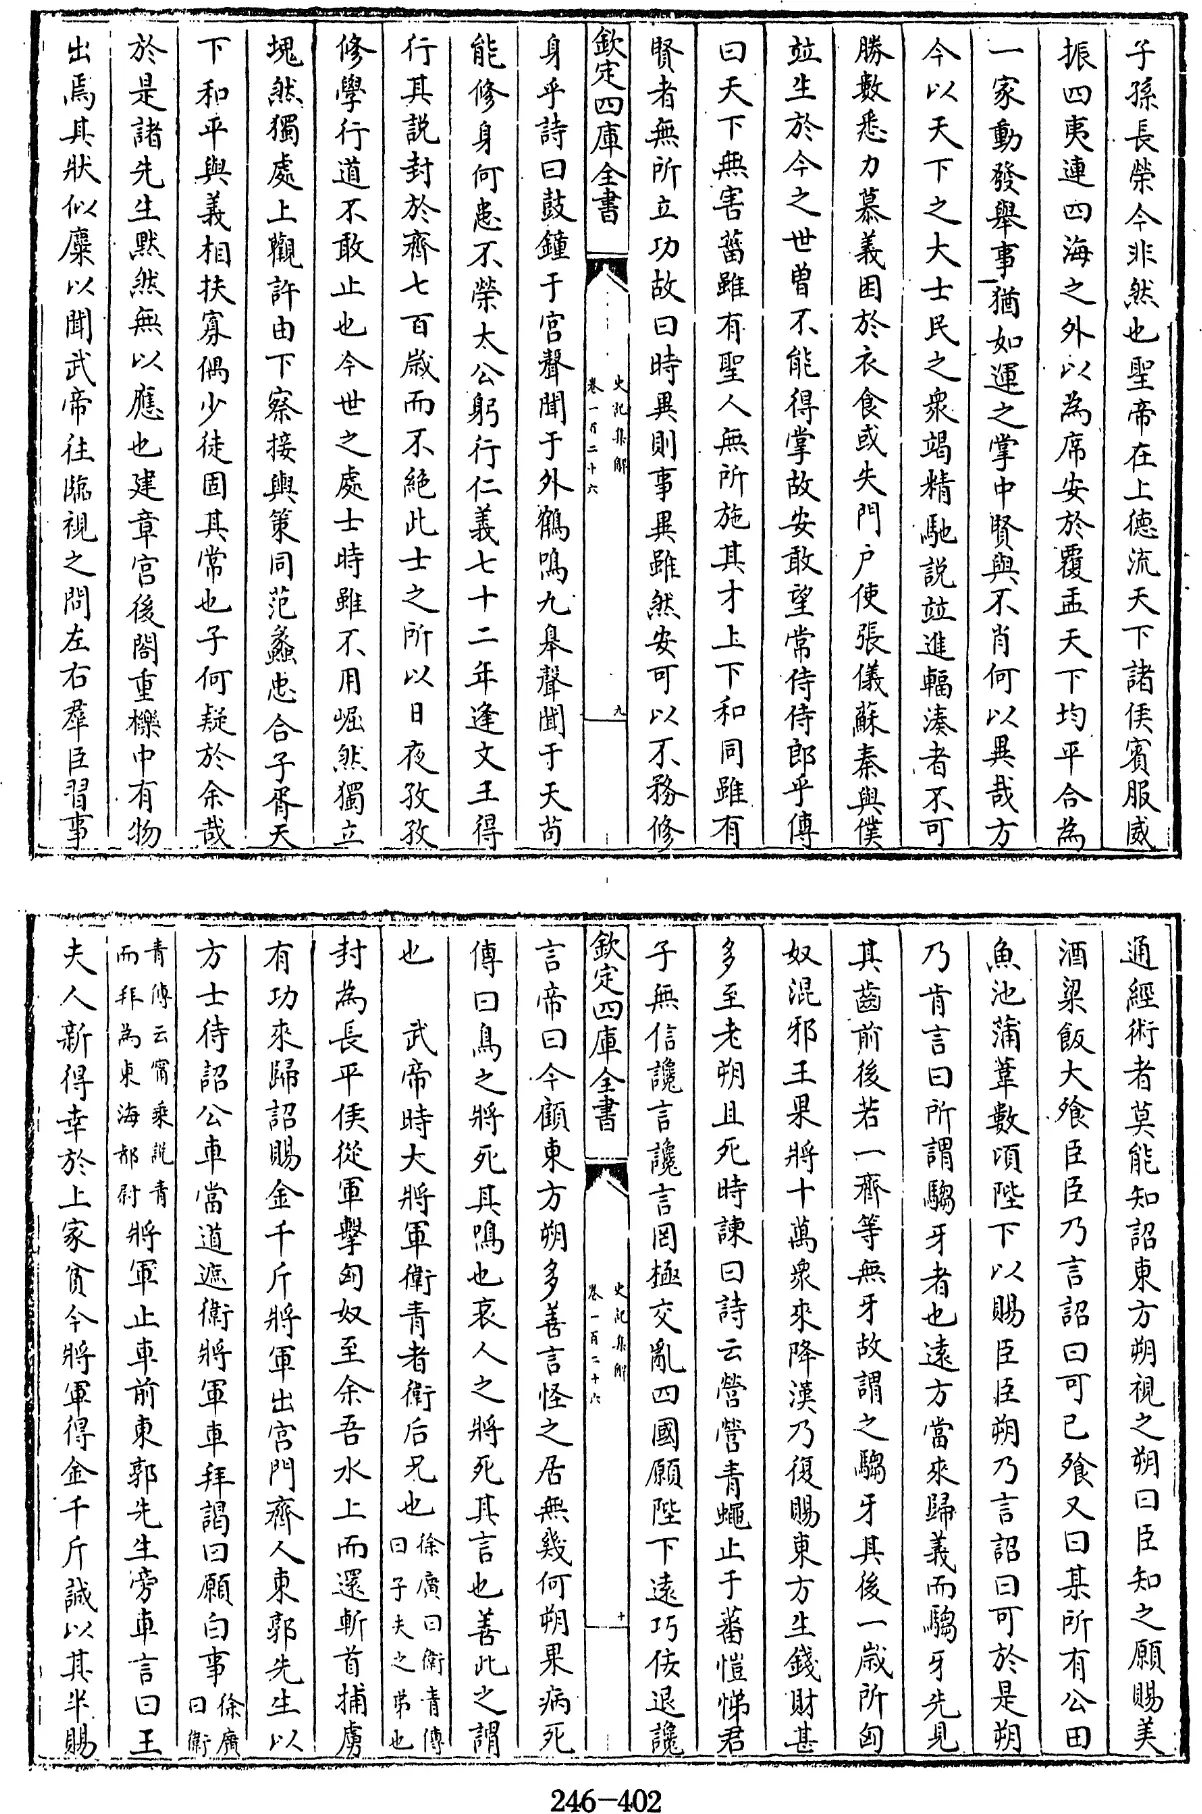 子孫長榮今非然也聖帝在上德流天下諸侯賓服威
振四夷連四海之外以為席安於覆盂天下均平合為
一家動發舉事猶如運之掌中賢與不肖何以異哉方
今以天下之大士民之衆竭精馳説竝進輻湊者不可
勝數悉力慕義困於衣食或失門户使張儀蘇秦與僕
竝生於今之世曽不能得掌故安敢望常侍侍郎乎傳
曰天下無害菑雖有聖人無所施其才上下和同雖有
賢者無所立功故曰時異則事異雖然安可以不務修
欽定四庫全書
史記集解
卷一百二十六
九
身乎詩曰鼓鐘于宫聲聞于外鶴鳴九臯聲聞于天苟
能修身何患不榮太公躬行仁義七十二年逢文王得
行其説封於齊七百嵗而不絶此士之所以日夜孜孜
修學行道不敢止也今世之處士時雖不用崛然獨立
塊然獨處上觀許由下察接輿策同范蠡忠合子胥天
下和平與義相扶寡偶少徒固其常也子何疑於余哉
於是諸先生黙然無以應也建章宫後閤重櫟中有物
出焉其狀似麋以聞武帝往臨視之問左右羣臣習事
通經術者莫能知詔東方朔視之朔曰臣知之願賜美
酒粱飯大飱臣臣乃言詔曰可已飱又曰某所有公田
魚池蒲葦數頃陛下以賜臣臣朔乃言詔曰可於是朔
乃肯言曰所謂騶牙者也遠方當來歸義而騶牙先見
其齒前後若一齊等無牙故謂之騶牙其後一嵗所匈
奴混邪王果將十萬衆來降漢乃復賜東方生錢財甚
多至老朔且死時諫曰詩云營營青蠅止于蕃愷悌君
子無信讒言讒言罔極交亂四國願陛下遠巧佞退讒
欽定四庫全書
史記集解
卷一百二十六
十
言帝曰今顧東方朔多善言怪之居無幾何朔果病死
傳曰鳥之將死其鳴也哀人之將死其言也善此之謂
也　武帝時大將軍衛青者衛后兄也徐廣曰衛青傳曰子夫之弟也
封為長平侯從軍擊匈奴至余吾水上而還斬首捕虜
有功來歸詔賜金千斤將軍出宫門齊人東郭先生以
方士待詔公車當道遮衛將軍車拜謁曰願白事徐廣曰衛
青傳云甯乗説青而拜為東海都尉將軍止車前東郭先生旁車言曰王
夫人新得幸於上家貧今將軍得金千斤誠以其半賜
246-402